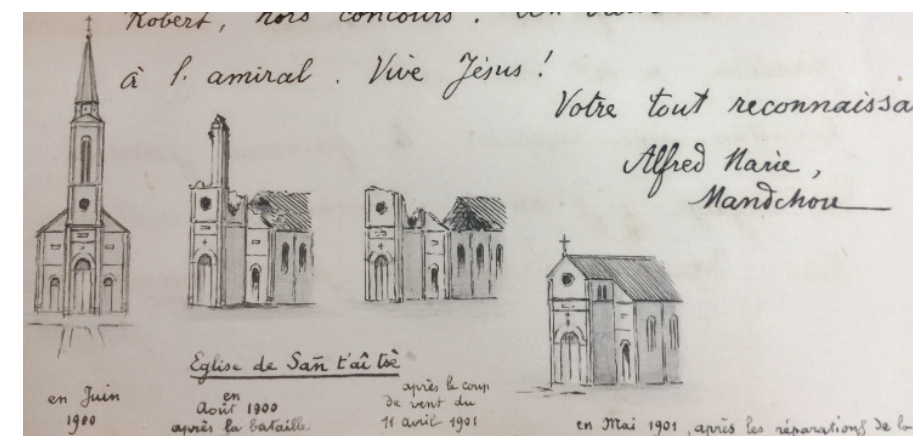 Robert, hors concours. Un
à l'amiral. Vive Jésus!
Votre tout reconnaissa
Alfred Marie,
Mandchou
Eglise de Sañ t'aî tsè
en Juin
1900
en
Août 1900
après la bataille.
après le coup
de vent du
11 avril 1901
en Mai 1901, après les réparations de la